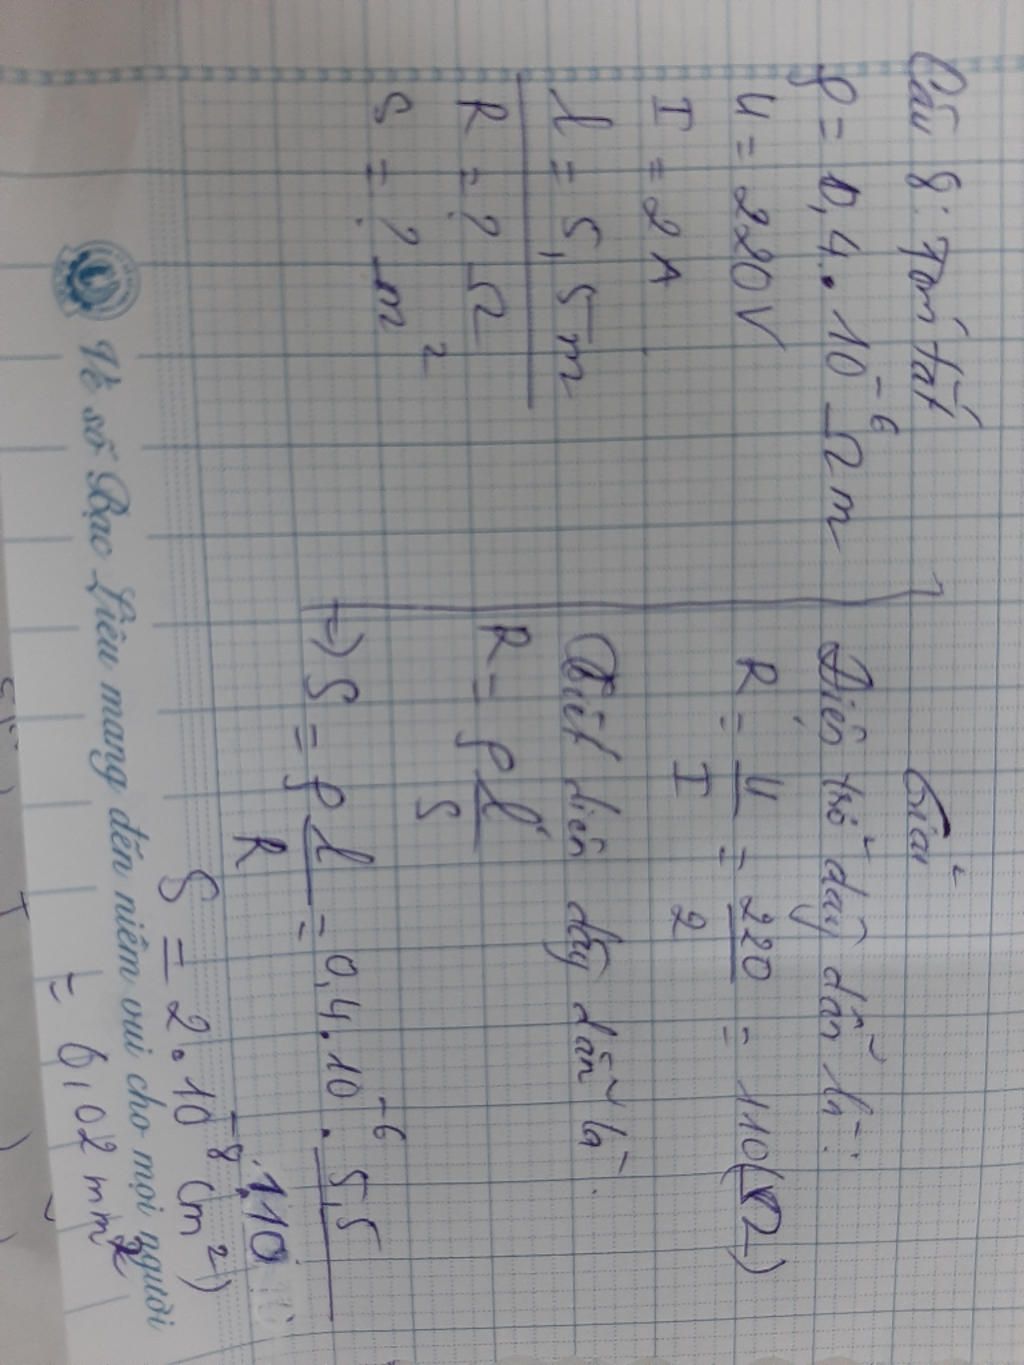 Câu 8: Tóm tắt
ρ = 0,4.10⁻⁶ Ωm
U = 220V
I = 2A
l = 5,5m
R = ? Ω
S = ? m²
Giải
Điện trở dây dẫn là:
R = U/I = 220/2 = 110(Ω)
Tiết diện dây dẫn là.
R = ρ l/S
=> S = ρ l/R = 0,4.10⁻⁶. 5,5/110
S = 2.10⁻⁸ (m²)
= 0,02 mm²
Vé số Bạc Liêu mang đến niềm vui cho mọi người